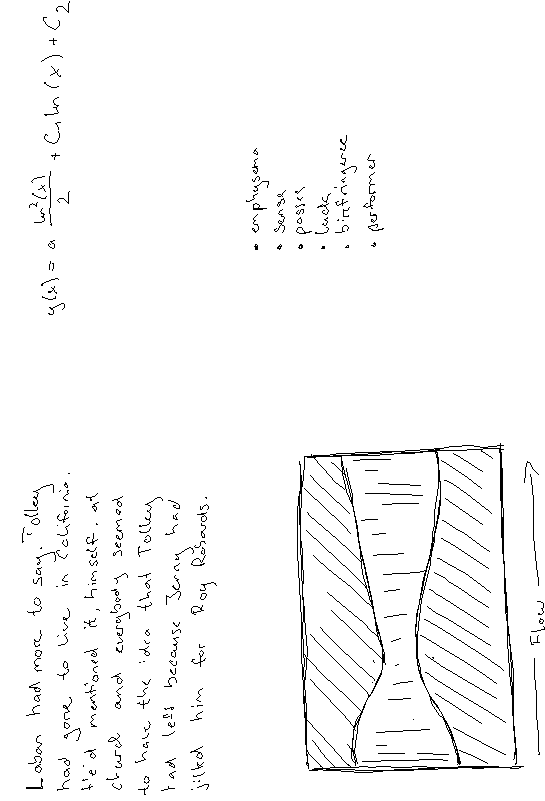 Laban had more to say. Tolley
had gone to live in California.
He'd mentioned it, himself. at
church and everybody seemed
to have the idea that Tolley
had left because Jenny had
jilted him for Roy Robards.
y(x) = a ln²(x)/2 + C₁ ln(x) + C₂
• emphysema
• sense
• passes
• lucks
• birefringence
• performer
Flow